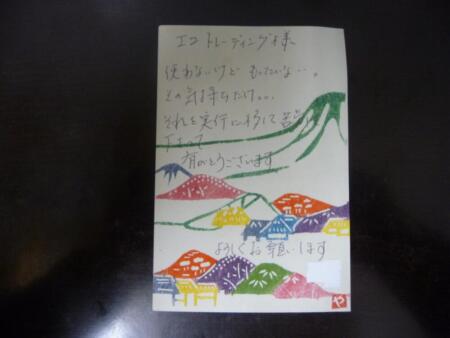 エコトレーディング様
使わないけど もったいな…。
その気持ちだけ。。
それを実行に移して
下さって
有がとうございます
よろしくお願いします
や